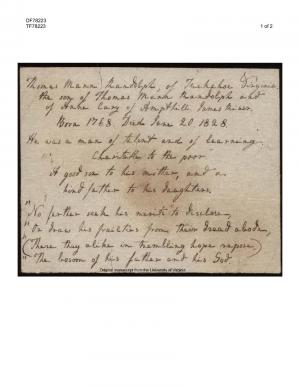 DF78223
TF78223
1 of 2
Thomas Mann Randolph, of Tuckahoe Virginia
the son of Thomas Mann Randolph and
of Anne Cary of Ampthill James River.
Born 1768. Died June 20 1828.
He was a man of talent and of learning,
Charitable to the poor
A good son to his mother, and a
kind father to his daughters.
"No farther seek his merits to disclose,
"Or draw his frailties from their dread abode,
(There they alike in trembling hope repose)
"The bosom of his father and his God.
Original manuscript from the University of Virginia